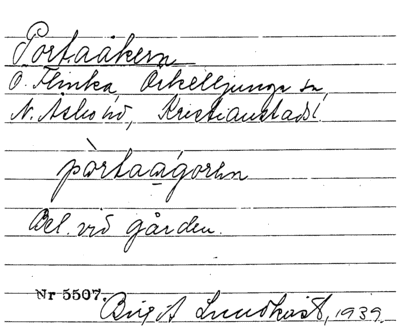 Portaåkern
O. Flinka, Örkelljunga sn,
N. Åsbo hd, Kristianstads l.
pòrtaagórən
Bel. vid gården.
Nr 5507. Birgit Lundkvist, 1939.